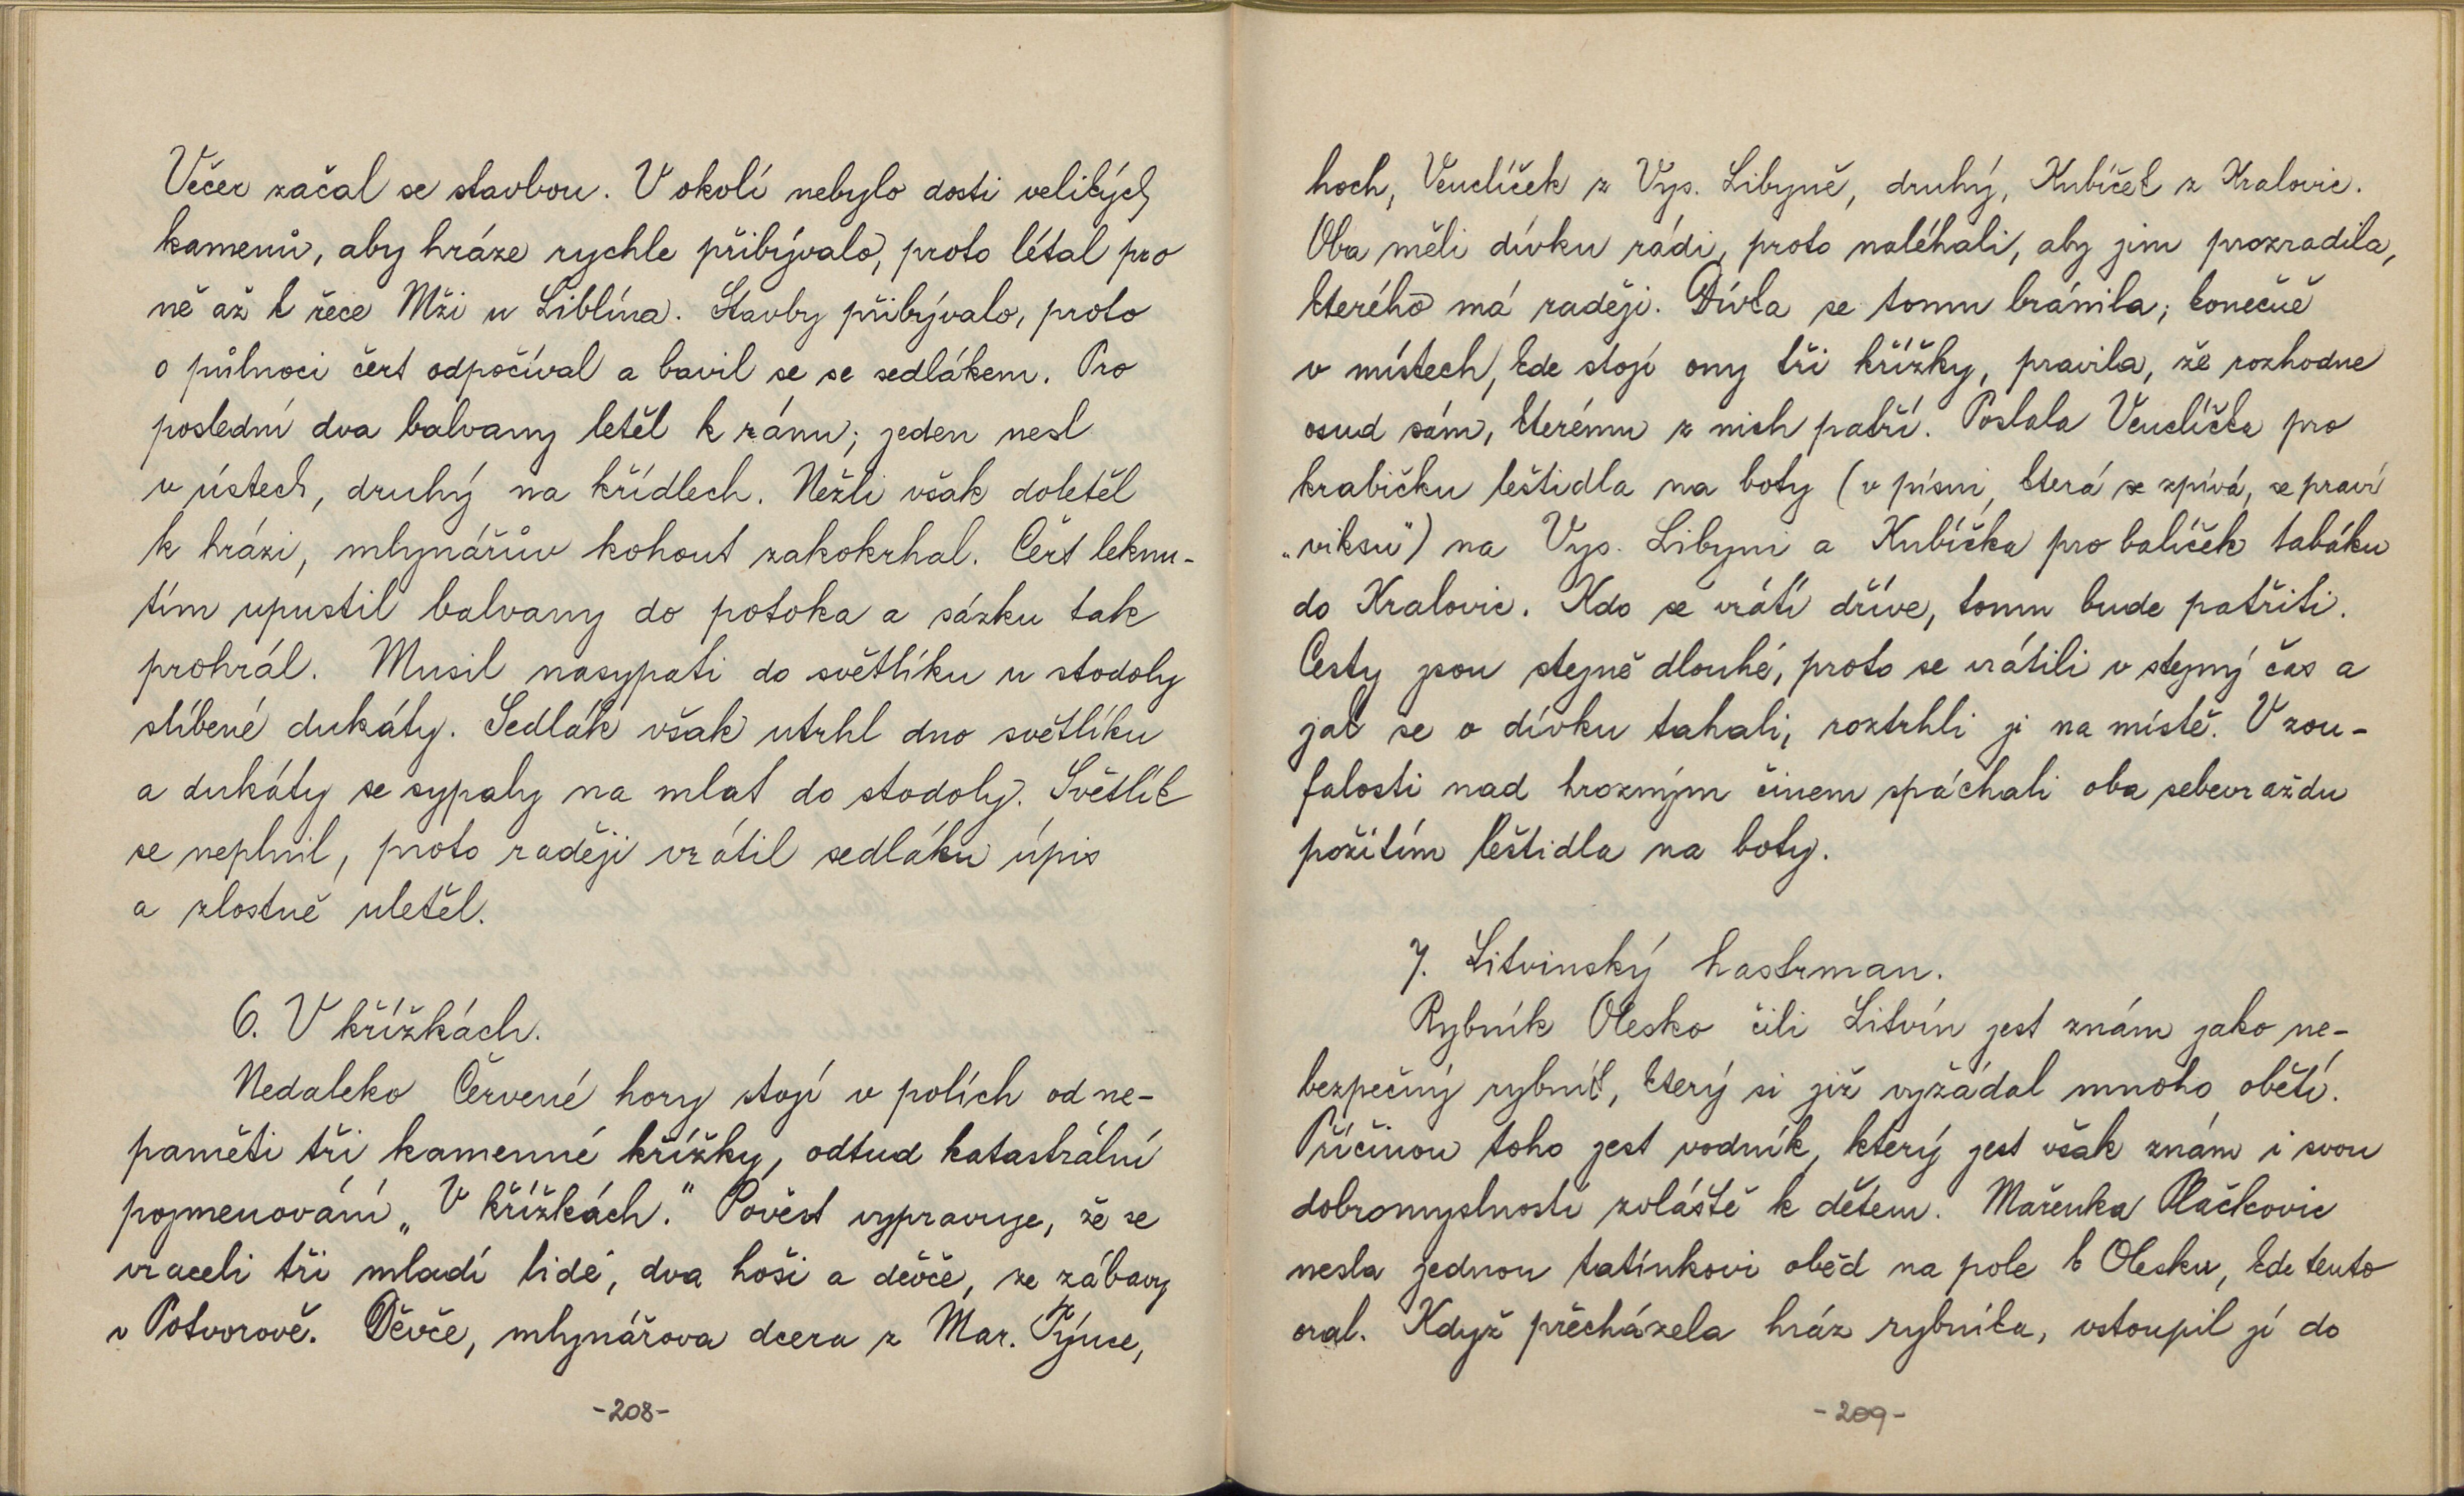 Večer začal se stavbou. V okolí nebylo dosti velikých
kamenů, aby hráze rychle přibývalo, proto létal pro
ně až k řece Mži u Liblína. Stavby přibývalo, proto
o půlnoci čert odpočíval a bavil se se sedlákem. Pro
poslední dva balvany letěl k ránu; jeden nesl
v ústech, druhý na křídlech. Nežli však doletěl
k hrázi, mlynářův kohout zakokrhal. Čert leknu-
tím upustil balvany do potoka a sázku tak
prohrál. Musil nasypati do světlíku u stodoly
slíbené dukáty. Sedlák však utrhl dno světlíku
a dukáty se sypaly na mlat do stodoly. Světlík
se neplnil, proto raději vrátil sedláku úpis
a zlostně uletěl.
6. V křížkách.
Nedaleko Červené hory stojí v polích od ne-
paměti tři kamenné křížky, odtud katastrální
pojmenování „V křížkách." Pověst vypravuje, že se
vraceli tři mladí lidé, dva hoši a děvče, ze zábavy
v Potvorově. Děvče, mlynářova dcera z Mar. Týnce,
-208-
hoch, Venclíček z Vys. Libyně, druhý, Kubíček z Kralovic.
Oba měli dívku rádi, proto naléhali, aby jim prozradila,
kterého má raději. Dívka se tomu bránila; konečně
v místech, kde stojí ony tři křížky, pravila, že rozhodne
osud sám, kterému z nich patří. Poslala Venclíčka pro
krabičku leštidla na boty (v písni, která se zpívá, se praví
„viksu") na Vys. Libyni a Kubíčka pro balíček tabáku
do Kralovic. Kdo se vrátí dříve, tomu bude patřiti.
Cesty jsou stejně dlouhé, proto se vrátili v stejný čas a
jak se o dívku tahali, roztrhli ji na místě. V zou-
falosti nad hrozným činem spáchali oba sebevraždu
požitím leštidla na boty.
7. Litvinský hastrman.
Rybník Olesko čili Litvín jest znám jako ne-
bezpečný rybník, který si již vyžádal mnoho obětí.
Příčinou toho jest vodník, který jest však znám i svou
dobromyslností zvláště k dětem. Mařenka Plačkovic
nesla jednou tatínkovi oběd na pole k Olesku, kde tento
oral. Když přecházela hráz rybníka, vstoupil jí do
-209-